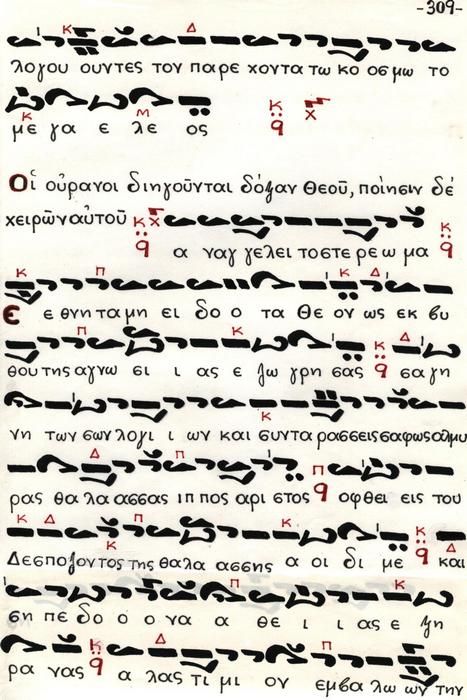 -309-
λογου ουντες τον παρε χοντα τω κο οσμω το
με γα ε λε ος
Οἱ οὐρανοι διηγοῦνται δόξαν Θεοῦ, ποίησιν δέ
χειρῶν αὐτοῦ
α ναγ γελει το στε ρε ω μα
Ε ε θνη τα μη ει δο ο τα Θε ον ως εκ βυ
θου της αγνω σι ι ας ε ζω γρη σας σαγη
νη των σων λογι ι ων και συντα ρασσεις σαφως αλμυ
ρας θα λα ασσας ιπ πος αρι στος οφθει εις του
Δεσποζοντος της θαλα ασσης α οι δι με και
ση πε δο ο ο να α θε ι ι ας ε ξη
ρα νας α λας τι μι ον εμβα λω ων την